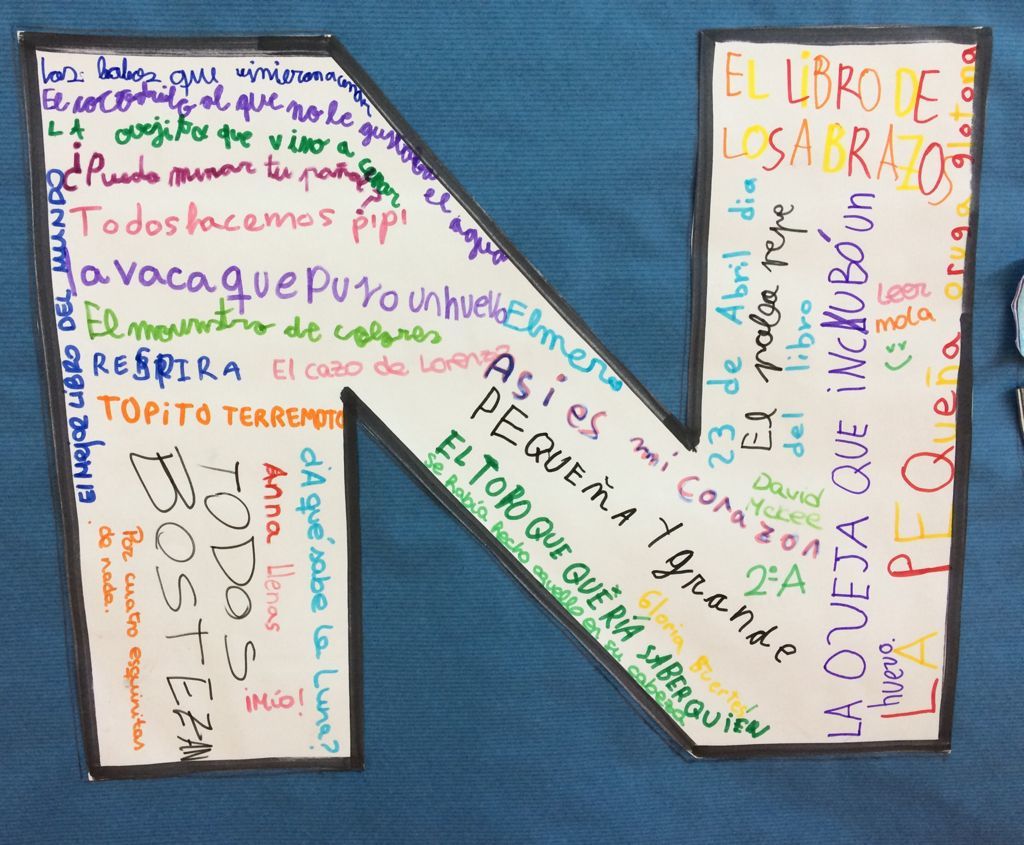 Los lobos que vinieron a cenar
El cocodrilo al que no le gustaba el agua
LA ovejita que vino a cenar
¿Puedo mirar tu pañal?
Todos hacemos pipi
la vaca que puso un huevo
El monstro de colores
Elmer
RESPIRA
El cazo de Lorenzo
TOPITO TERREMOTO
El MEJOR LIBRO DEL MUNDO
Por cuatro esquinitas
de nada.
TODOS
BOSTEZAN
Anna Llenas
¡Mío!
¿A qué sabe la Luna?
Asi es mi corazon
PEQUEÑA Y grande
EL TORO QUE QUERÍA SABER QUIEN
se había hecho aquello en su cabeza
Gloria Fuertes
EL LIBRO DE
LOS ABRAZOS
23 de Abril dia
del libro
David
McKee
2º A
LA OVEJA QUE INCUBÓ UN
huevo.
Leer
mola
LA PEQueña oruga glotona